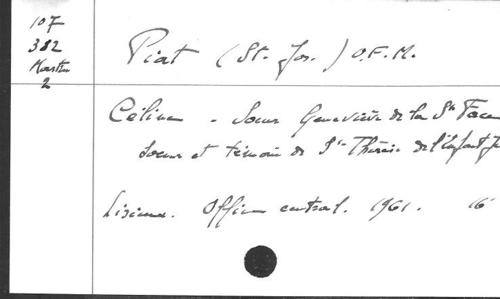 107
382
2
Piat (St. Jos.) O.F.M.
Céline. - Soeur Geneviève de la Ste Face
soeur et témoin de Ste Thérèse de l'Enfant J
Lisieux. Office central. 1961. 16°